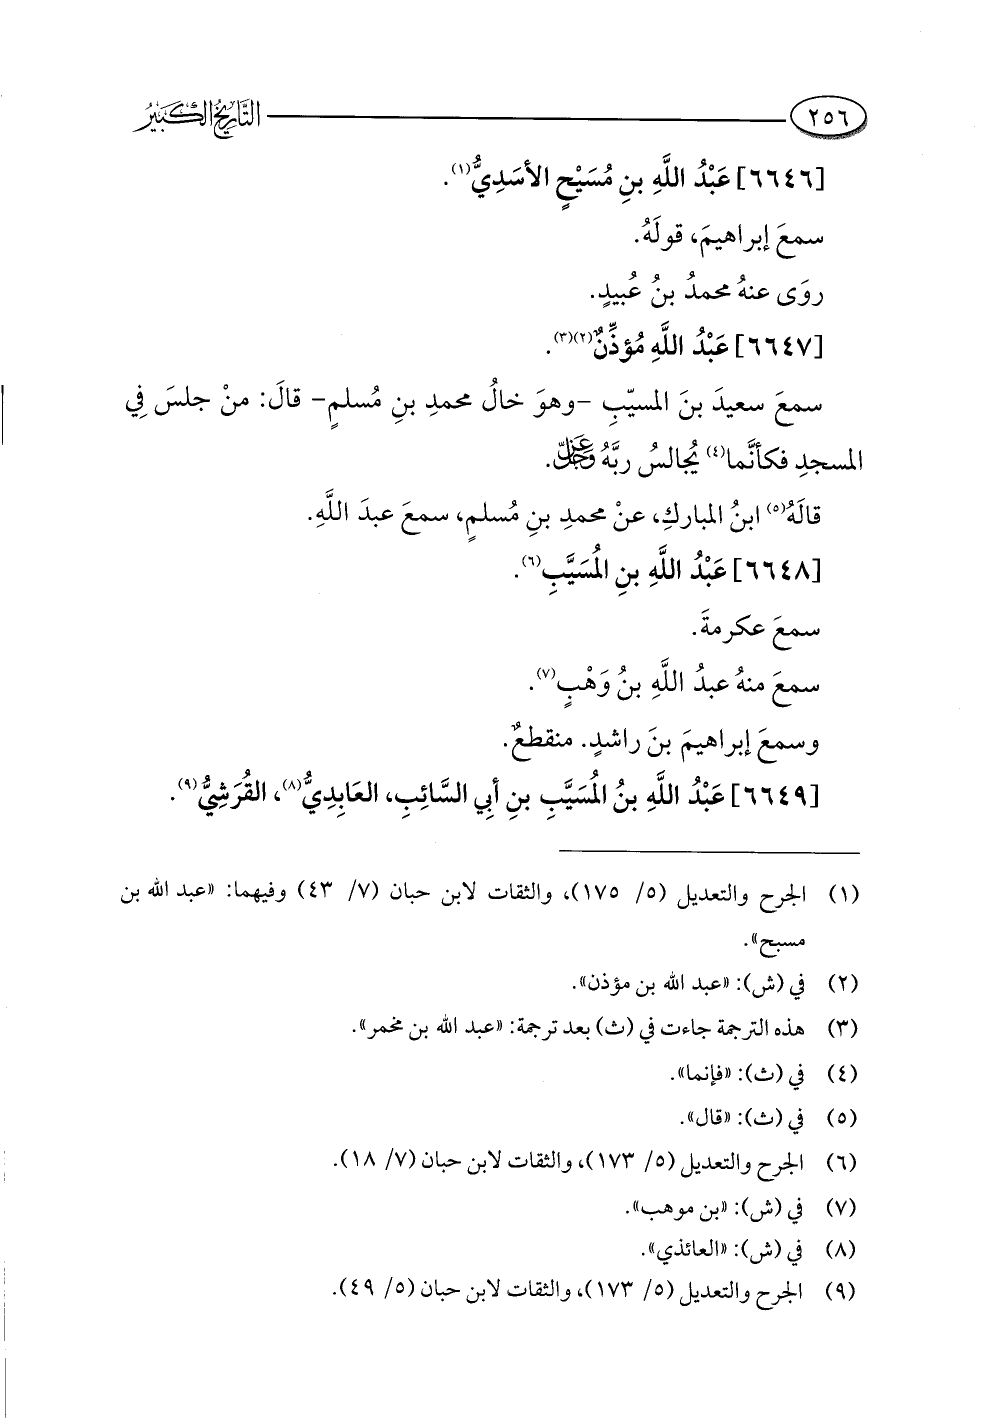 ٢٥٦ التَّارِيخُ الكَبِيرُ
[٦٦٤٦] عَبْدُ اللَّهِ بنِ مُسَيْحٍ الأسَدِيُّ(١).
سمعَ إبراهيمَ، قولَهُ.
روَى عنهُ محمدُ بنُ عُبيدٍ.
[٦٦٤٧] عَبْدُ اللَّهِ مُؤذِّنٌ(٢)(٣).
سمعَ سعيدَ بنَ المسيّبِ -وهوَ خالُ محمدِ بنِ مُسلمٍ- قالَ: منْ جلسَ فِي
المسجدِ فكأنَّما(٤) يُجالسُ ربَّهُ عَزَّ وَجَلَّ.
قالَهُ(٥) ابنُ المباركِ، عنْ محمدِ بنِ مُسلمٍ، سمعَ عبدَ اللَّهِ.
[٦٦٤٨] عَبْدُ اللَّهِ بنِ المُسَيَّبِ(٦).
سمعَ عكرمةَ.
سمعَ منهُ عبدُ اللَّهِ بنُ وَهْبٍ(٧).
وسمعَ إبراهيمَ بنَ راشدٍ. منقطعٌ.
[٦٦٤٩] عَبْدُ اللَّهِ بنُ المُسَيَّبِ بنِ أبِي السَّائِبِ، العَابِدِيُّ(٨)، القُرَشِيُّ(٩).
(١) الجرح والتعديل (٥/ ١٧٥)، والثقات لابن حبان (٧/ ٤٣) وفيهما: «عبد الله بن
مسبح».
(٢) في (ش): «عبد الله بن مؤذن».
(٣) هذه الترجمة جاءت في (ث) بعد ترجمة: «عبد الله بن مخمر».
(٤) في (ث): «فإنما».
(٥) في (ث): «قال».
(٦) الجرح والتعديل (٥/ ١٧٣)، والثقات لابن حبان (٧/ ١٨).
(٧) في (ش): «بن موهب».
(٨) في (ش): «العائذي».
(٩) الجرح والتعديل (٥/ ١٧٣)، والثقات لابن حبان (٥/ ٤٩).